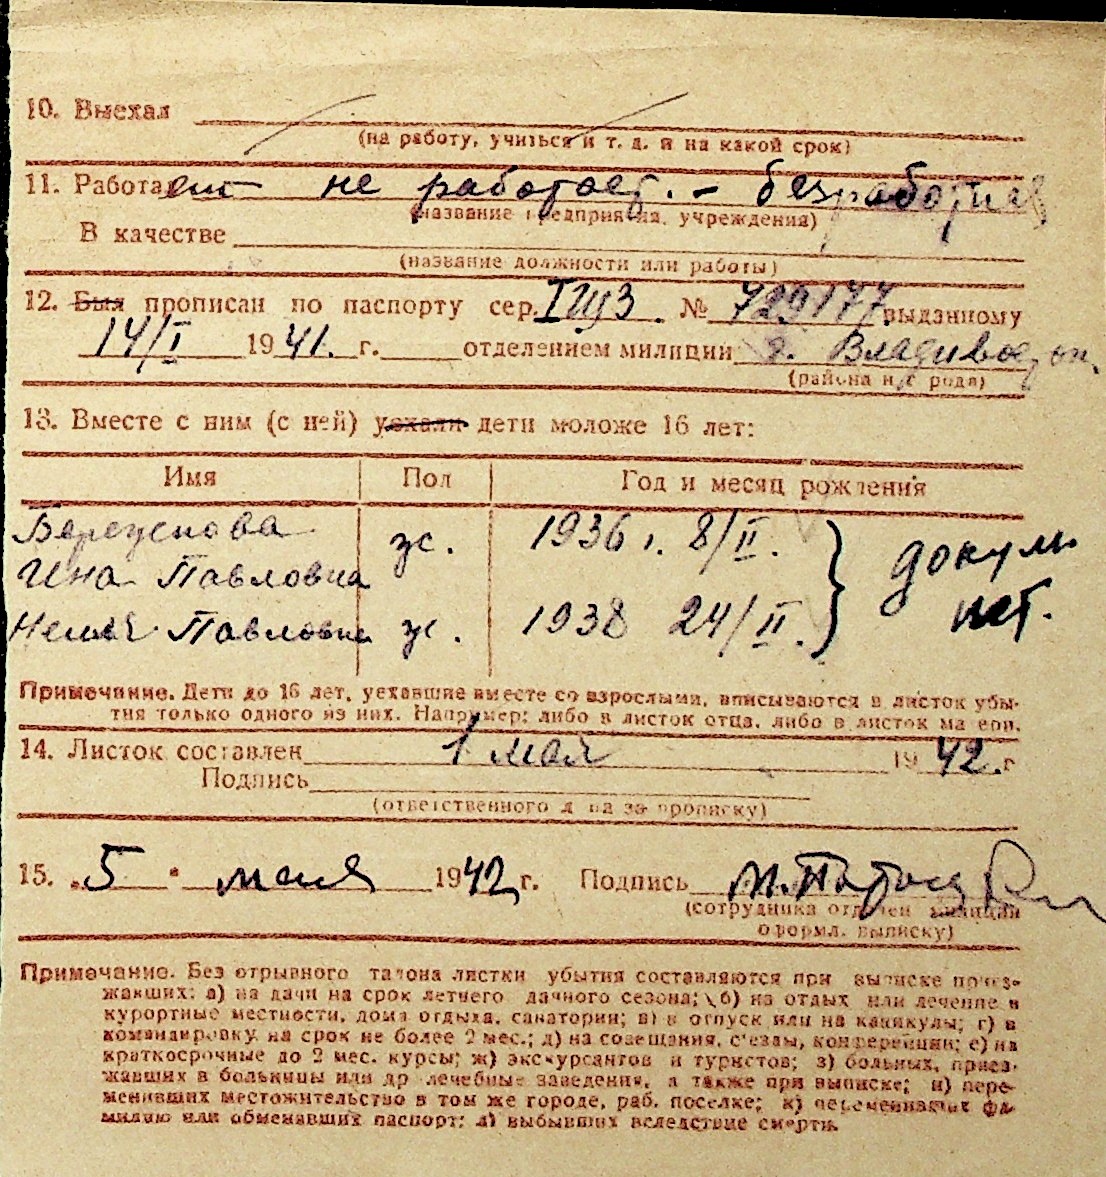 10. Выехал
(на работу, учиться и т. д. и на какой срок)
11. Работает не работает. - безработная
(название предприятия, учреждения)
В качестве
(название должности или работы)
12. Был прописан по паспорту сер. № 729177 выданному
14/I 1941. г. отделением милиции г. Владивосток.
(района и города)
13. Вместе с ним (с ней) уехали дети моложе 16 лет:
Имя Пол Год и месяц рождения
ж. 1936 г. 8/II. докум
Павловна нет.
Павловна ж. 1938 24/II.
Примечание. Дети до 16 лет, уехавшие вместе со взрослыми, вписываются в листок убы-
тия только одного из них. Например: либо в листок отца, либо в листок матери.
14. Листок составлен 1 мая 1942. г
Подпись
(ответственного лица за прописку)
15. „5" мая 1942 г. Подпись
(сотрудника отделен. милиции
оформл. выписку)
Примечание. Без отрывного талона листки убытия составляются при выписке приез-
жавших: а) на дачи на срок летнего дачного сезона; б) на отдых или лечение в
курортные местности, дома отдыха, санатории; в) в отпуск или на каникулы; г) в
командировку на срок не более 2 мес.; д) на совещания, съезды, конференции; е) на
краткосрочные до 2 мес. курсы; ж) экскурсантов и туристов; з) больных, приез-
жавших в больницы или др лечебные заведения, а также при выписке; и) пере-
менивших местожительство в том же городе, раб. поселке; к) переменивших фа-
милию или обменявших паспорт; л) выбывших вследствие смерти.